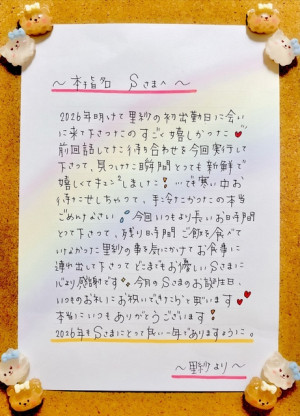 〜本指名 Sさまへ〜
2026年明けて里紗の初出勤日に会い
に来て下さったのすごく嬉しかった
前回話してた待ち合わせを今回実行して
下さって、見つけた瞬間とっても新鮮で
嬉しくてキュンしました!…でも寒い中お
待たせしちゃって、手冷たかったの本当
ごめんなさい 今回いつもより長いお時間
とって下さって、残り時間ご飯を食べて
いなかった里紗の事を気にかけてお食事に
連れ出して下さってどこまでもお優しいSさまに
心より感謝です 今月のSさまのお誕生日、
いつものお礼にお祝いできたらって思います
本当にいつもありがとうございます
2026年もSさまにとって良い一年でありますように。
〜里紗より〜